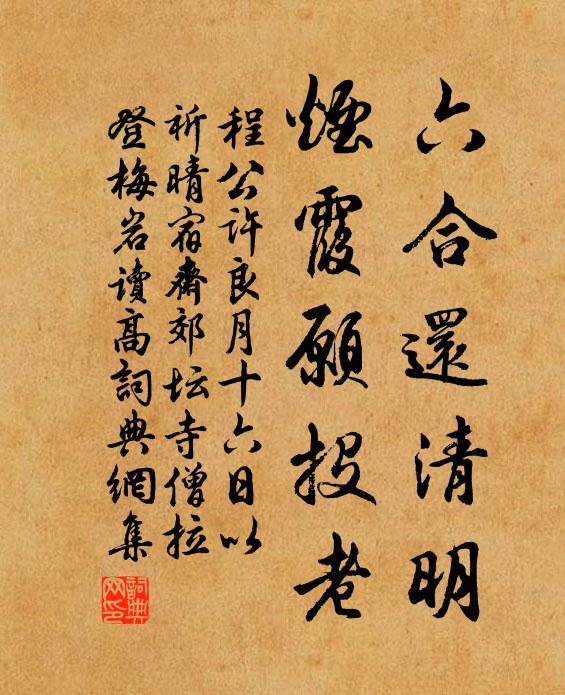 六合還清明
煙霞願投老
程公許良月十六日以
祈晴宿齋郊坛寺僧拉
登梅岩讀高詞典網集
詞典
网印